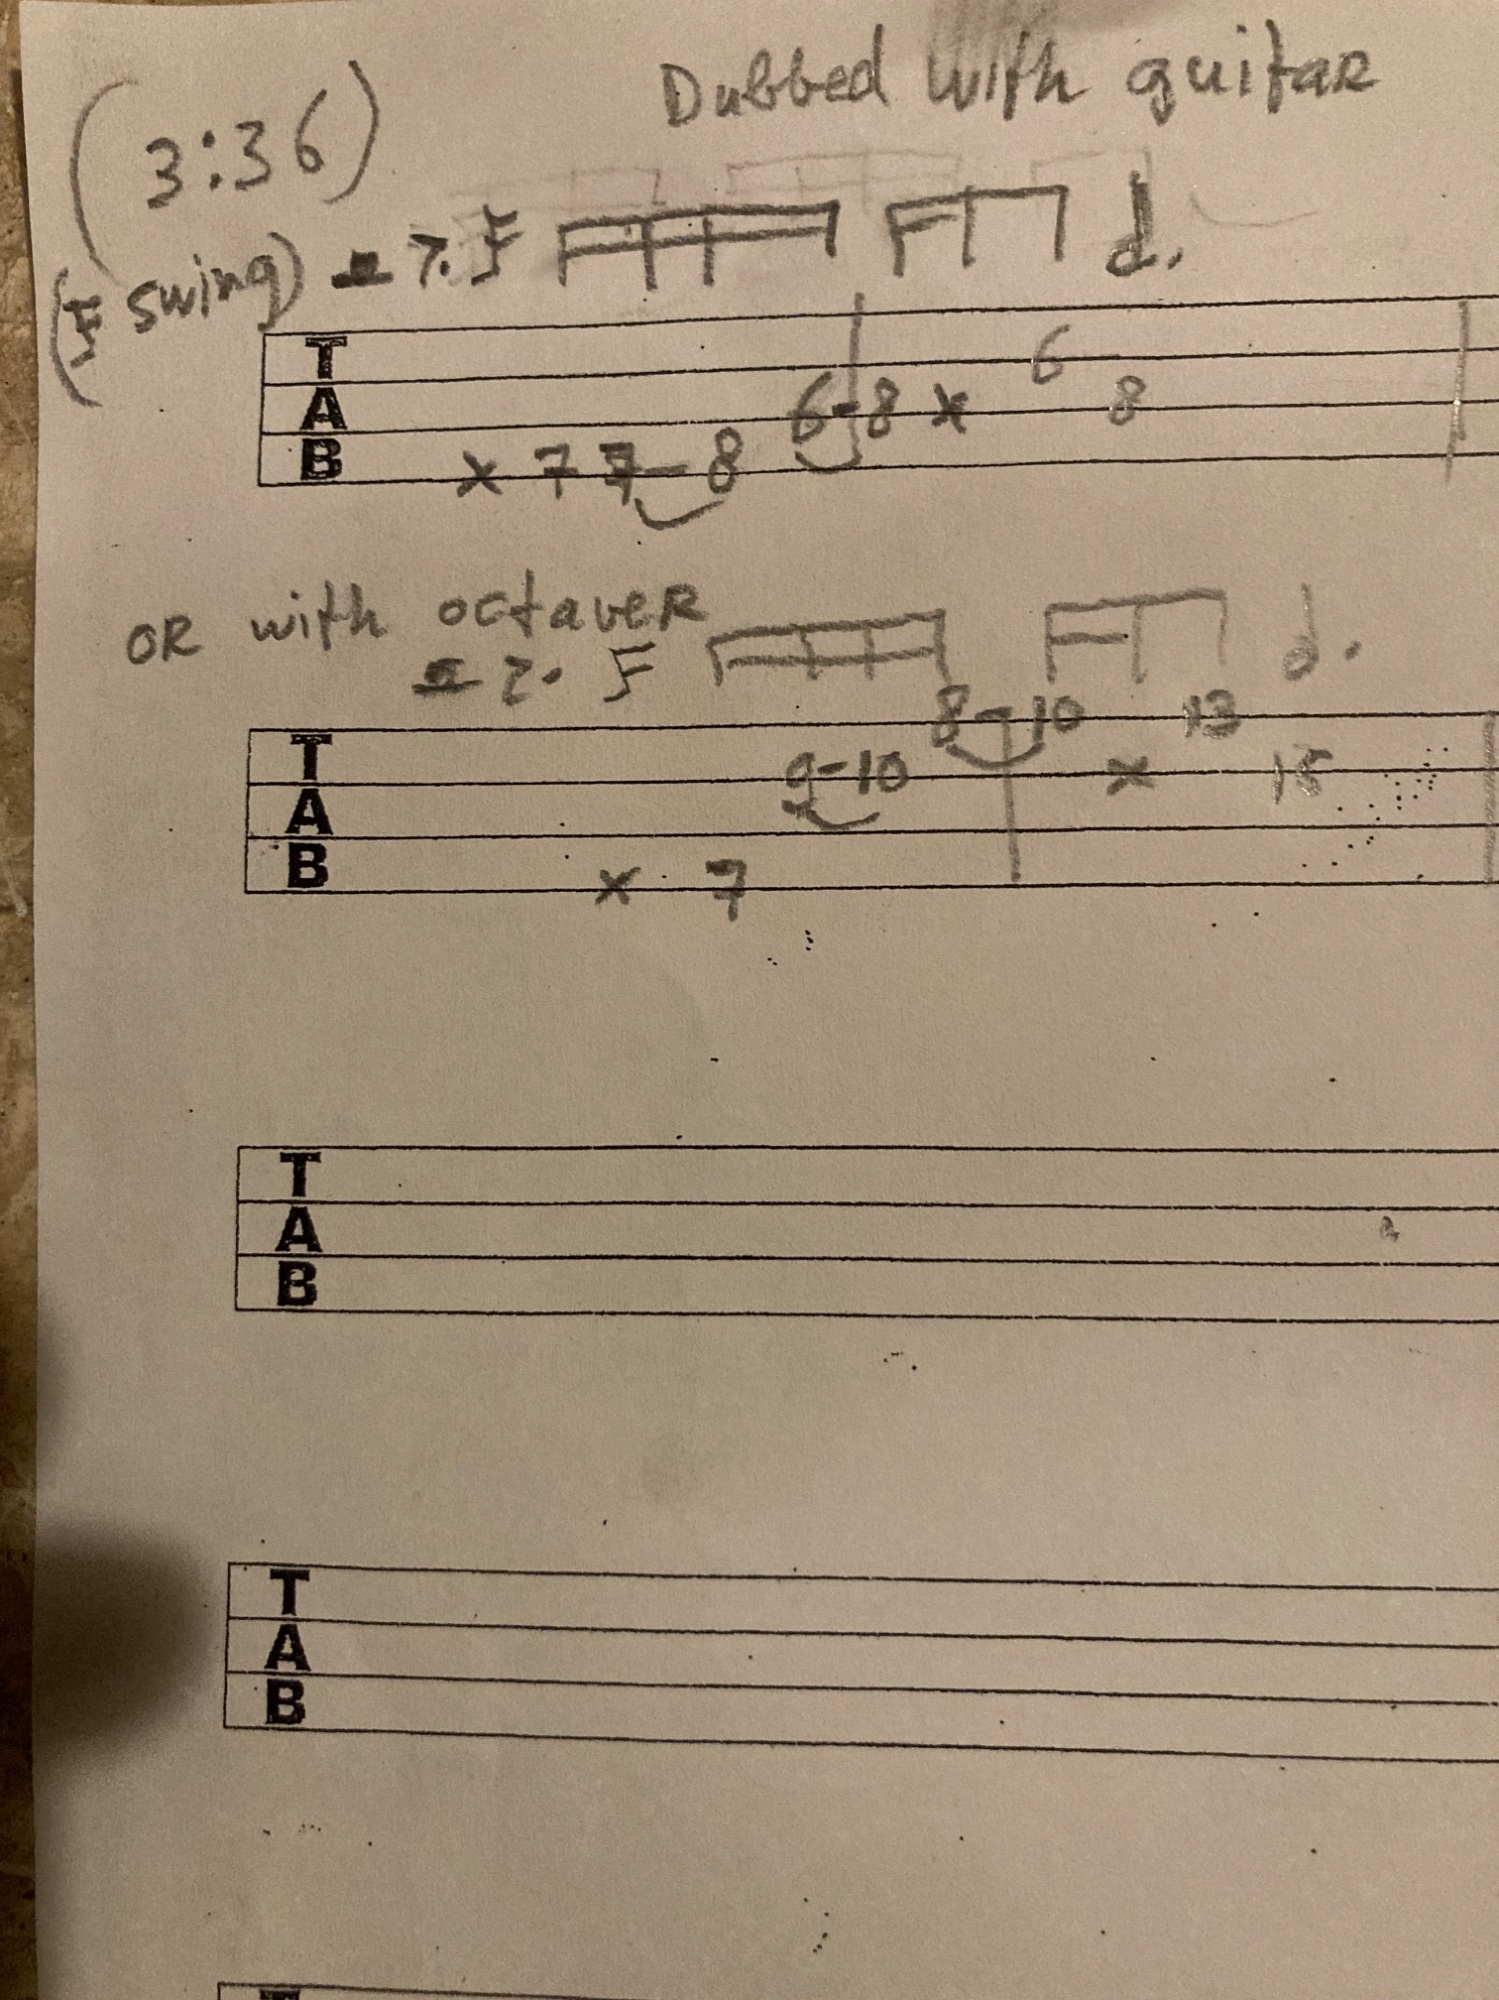 Dubbed with guitar
(3:36)
(F swing)
T
A
B
x 7 7-8 6-8 x 6 8
OR with octaver
T
A
B
x 7 9-10 8-10 x 13 15
T
A
B
T
A
B
T